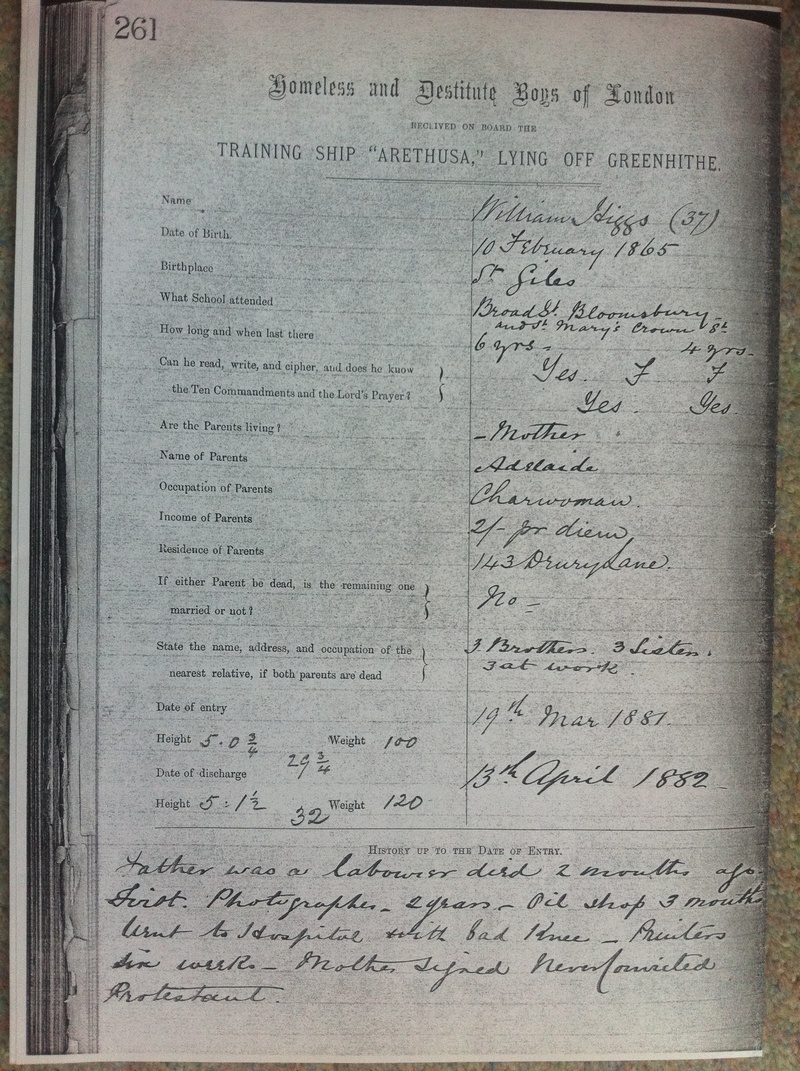 261
Homeless and Destitute Boys of London
RECEIVED ON BOARD THE
TRAINING SHIP "ARETHUSA," LYING OFF GREENHITHE.
Name William Higgs (37)
Date of Birth 10 February 1865
Birthplace St Giles
What School attended Broad St. Bloomsbury
and St Mary's Crown St
How long and when last there 6 yrs - 4 yrs -
Can he read, write, and cipher, and does he know Yes. F F
the Ten Commandments and the Lord's Prayer? Yes. Yes.
Are the Parents living? - Mother
Name of Parents Adelaide
Occupation of Parents Charwoman.
Income of Parents 2/- pr diem
Residence of Parents 143 Drury Lane.
If either Parent be dead, is the remaining one
married or not? No -
State the name, address, and occupation of the 3 Brothers. 3 Sisters.
nearest relative, if both parents are dead 3 at work.
Date of entry 19th Mar 1881.
Height 5.0 3/4 Weight 100
29 3/4
Date of discharge 13th April 1882
Height 5:1 1/2 32 Weight 120
HISTORY UP TO THE DATE OF ENTRY.
Father was a labourer died 2 months ago.
Photographer - 2 years - Oil shop 3 months
Went to Hospital with bad Knee - Printers
six weeks - Mother signed Never Convicted
Protestant.